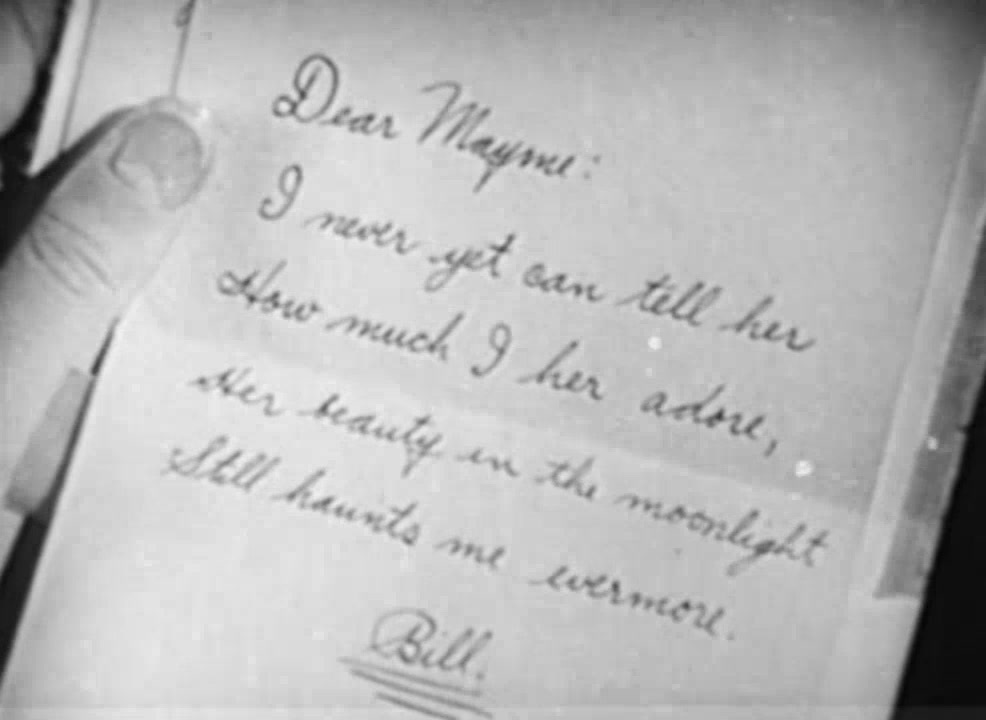 Dear Mayme:
I never yet can tell her
How much I her adore,
Her beauty in the moonlight
Still haunts me evermore.
Bill.